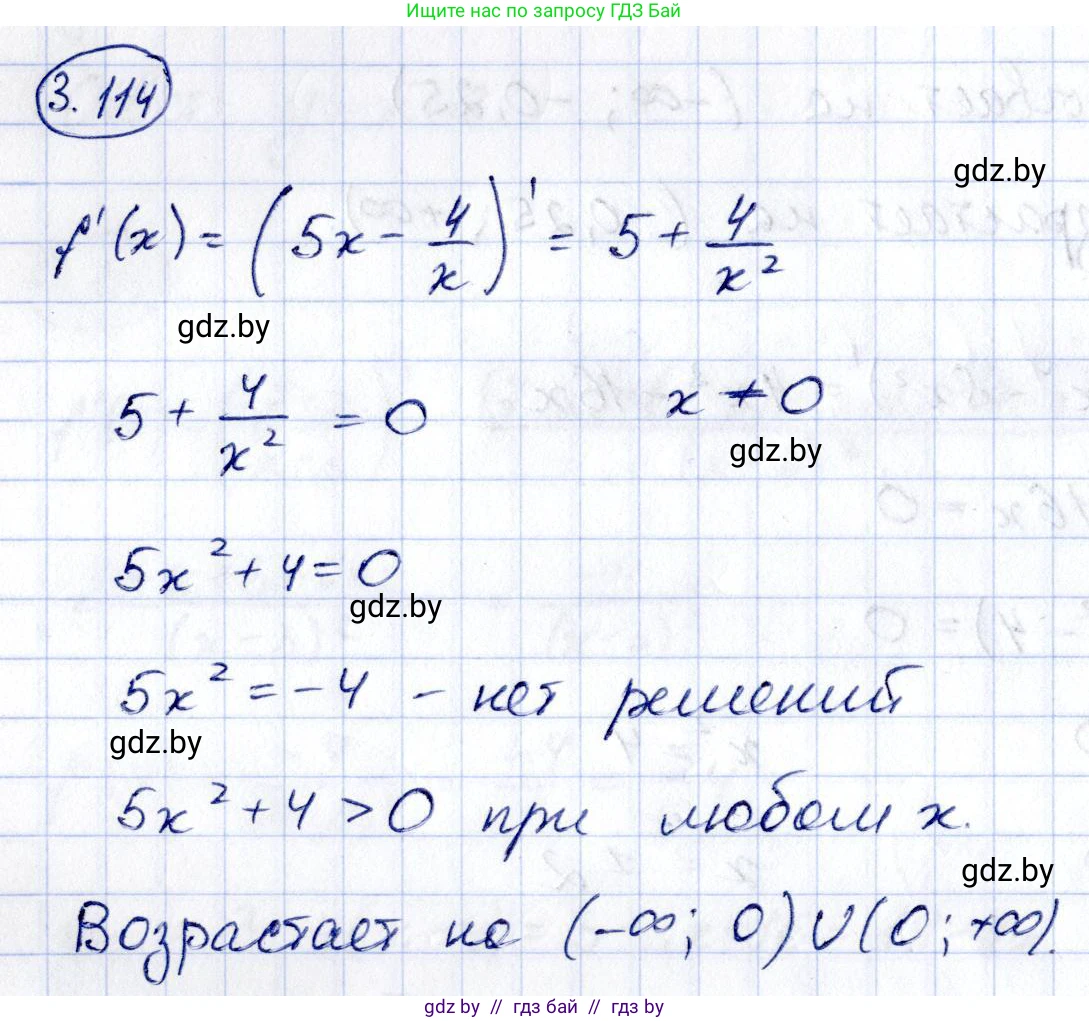 Ищите нас по запросу ГДЗ Бай
3.114
gdz.by
f'(x) = (5x - 4/x)' = 5 + 4/x²
gdz.by
5 + 4/x² = 0 x ≠ 0
gdz.by
5x² + 4 = 0
gdz.by
5x² = -4 - нет решений
gdz.by
5x² + 4 > 0 при любом x.
gdz.by
Возрастает на (-∞; 0) U (0; +∞).
gdz.by // гдз бай // гдз by